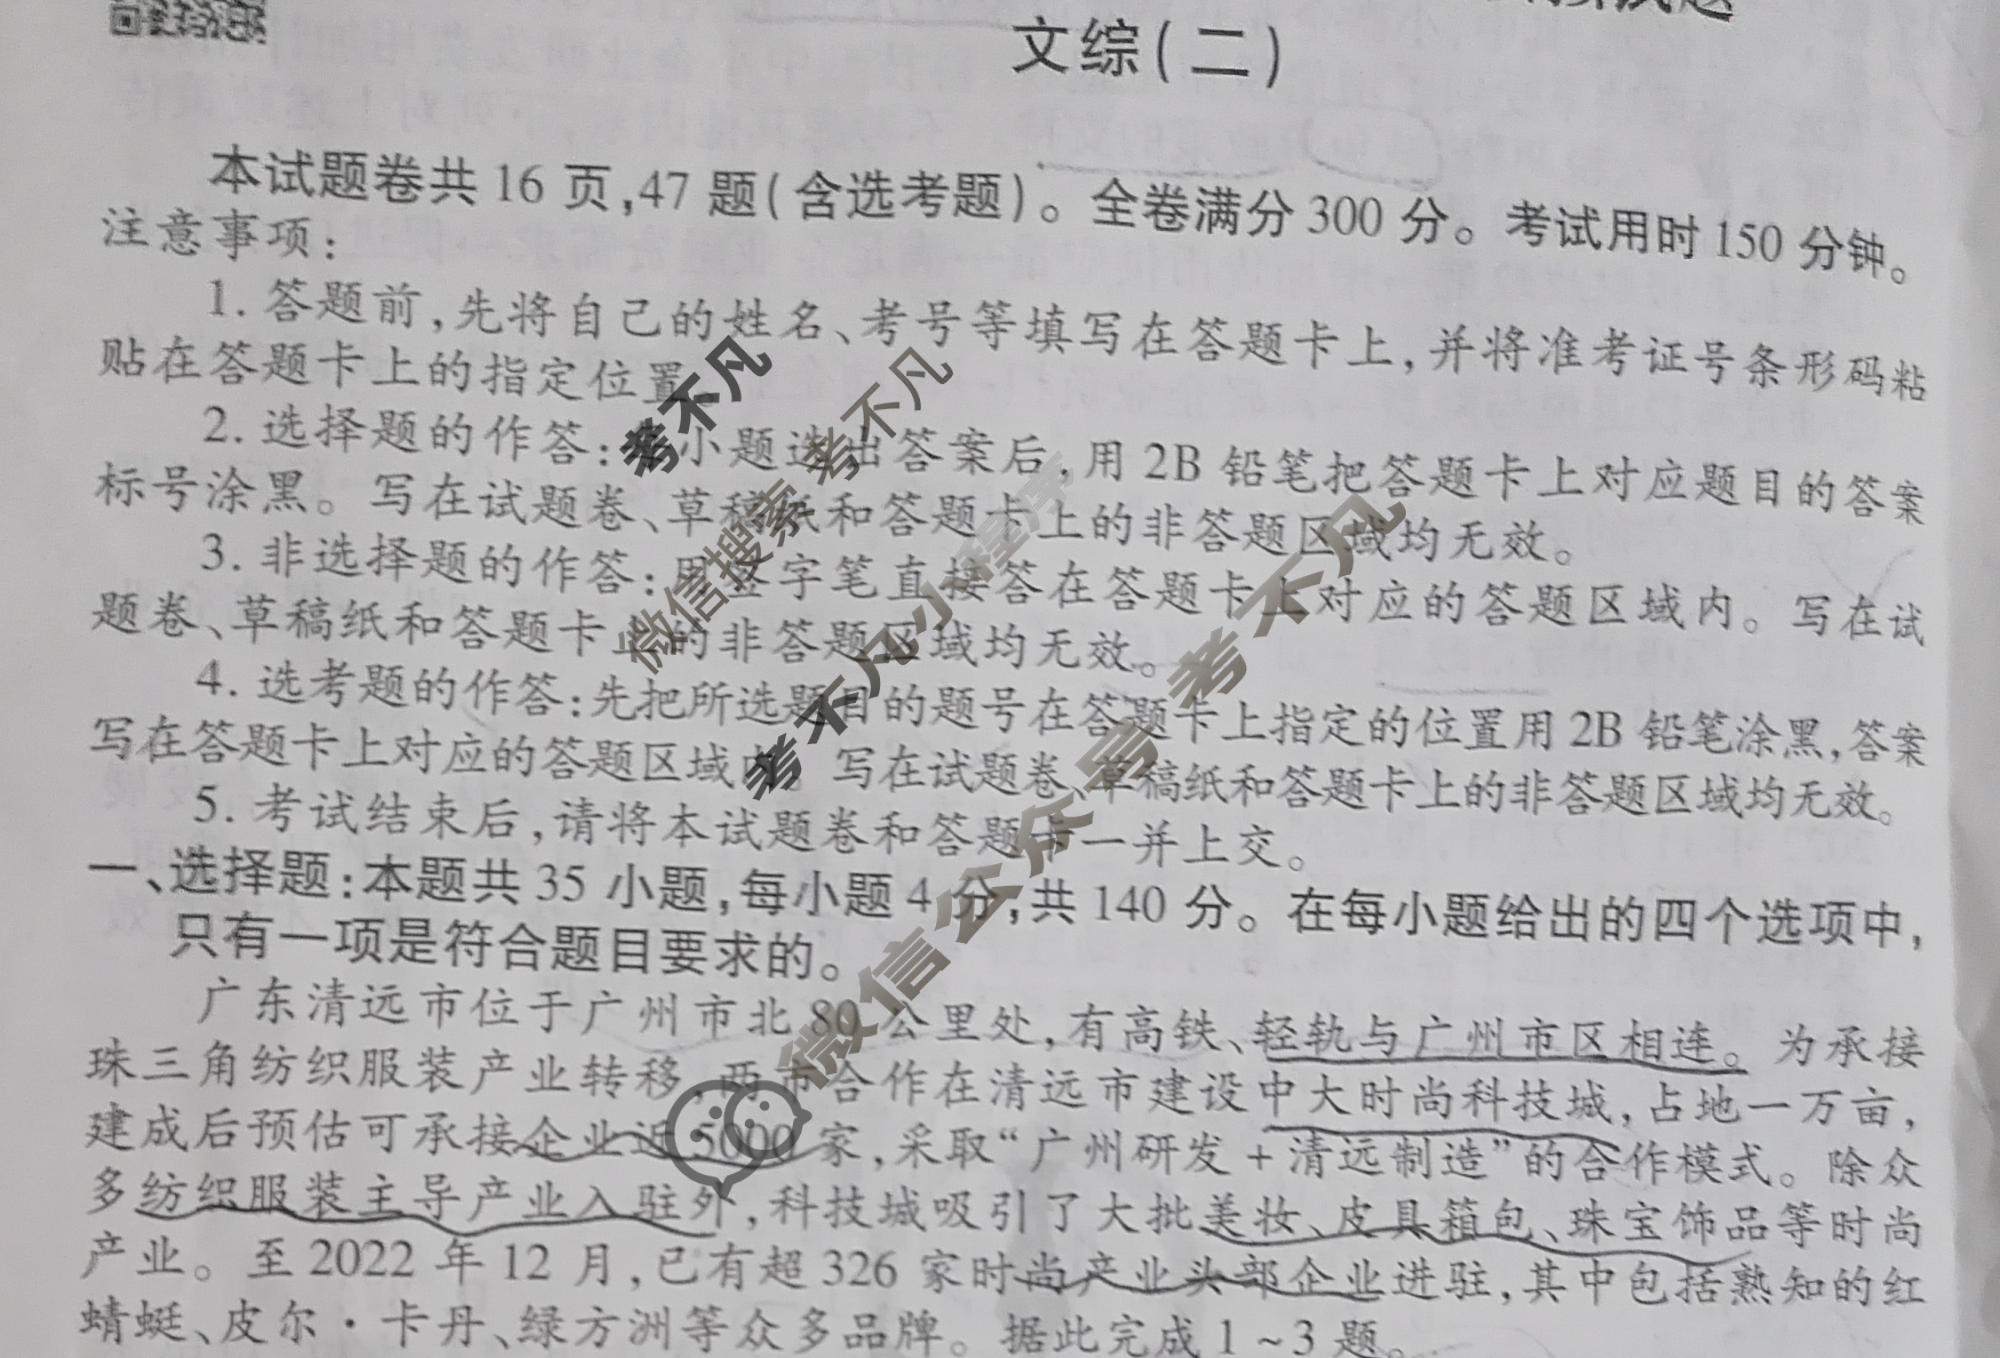 文综(二)
本试题卷共16页,47题(含选考题)。全卷满分300分。考试用时150分钟。
注意事项:
1.答题前,先将自己的姓名、考号等填写在答题卡上,并将准考证号条形码粘
贴在答题卡上的指定位置。
2.选择题的作答:每小题选出答案后,用2B铅笔把答题卡上对应题目的答案
标号涂黑。写在试题卷、草稿纸和答题卡上的非答题区域均无效。
3.非选择题的作答:用签字笔直接答在答题卡上对应的答题区域内。写在试
题卷、草稿纸和答题卡上的非答题区域均无效。
4.选考题的作答:先把所选题目的题号在答题卡上指定的位置用2B铅笔涂黑,答案
写在答题卡上对应的答题区域内。写在试题卷、草稿纸和答题卡上的非答题区域均无效。
5.考试结束后,请将本试题卷和答题卡一并上交。
一、选择题:本题共35小题,每小题4分,共140分。在每小题给出的四个选项中,
只有一项是符合题目要求的。
广东清远市位于广州市北80公里处,有高铁、轻轨与广州市区相连。为承接
珠三角纺织服装产业转移,两市合作在清远市建设中大时尚科技城,占地一万亩,
建成后预估可承接企业近5000家,采取“广州研发+清远制造”的合作模式。除众
多纺织服装主导产业入驻外,科技城吸引了大批美妆、皮具箱包、珠宝饰品等时尚
产业。至2022年12月,已有超326家时尚产业头部企业进驻,其中包括熟知的红
蜻蜓、皮尔·卡丹、绿方洲等众多品牌。据此完成1~3题。
考不凡
微信搜索 考不凡
考不凡小程序
微信公众号 考不凡